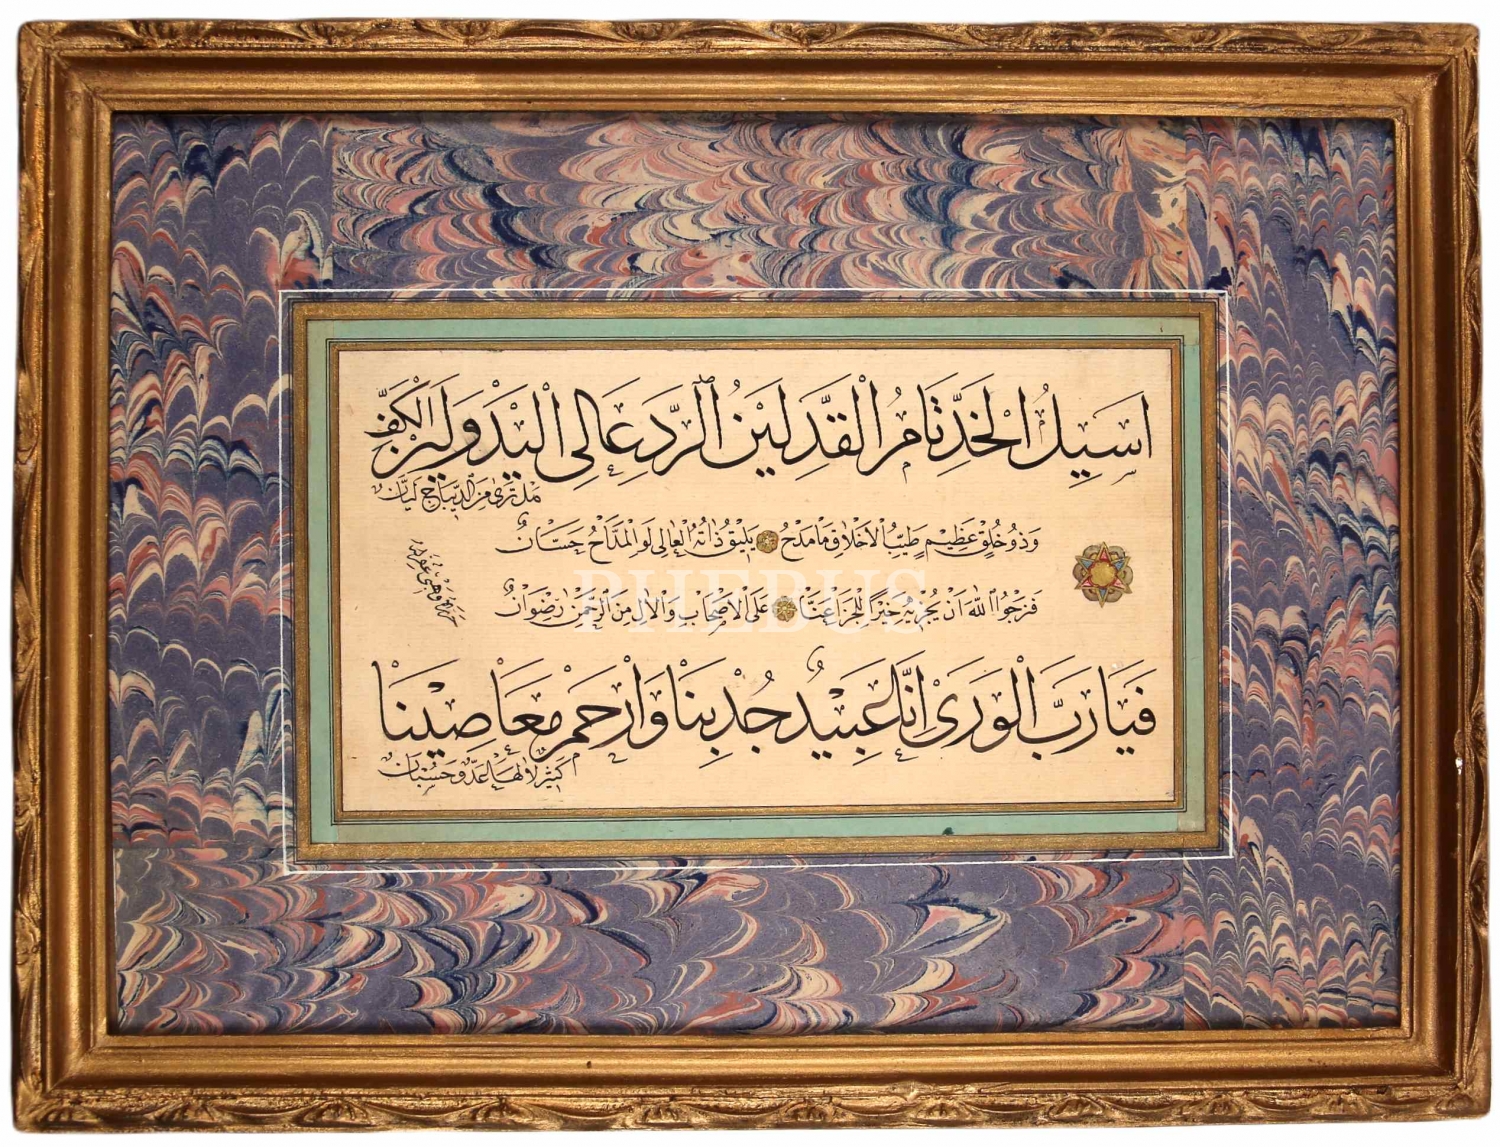 اَسِيلُ الْخَدِّ تَامُّ الْقَدِّ لَيِّنُ الرَّدِّ عَالِى الْيَدِ وَلَيِّنُ الْكَفِّ
وَذُو خُلُقٍ عَظِيمٍ طَيِّبُ الْاَخْلَاقِ مَا مَدْحُ يَلِيقُ ذَاتَهُ الْعَالِى لَوِ الْمَدَّاحُ حَسَّانٌ
فَنَرْجُوا اللّٰهَ اَنْ يُجْزِيَهُ خَيْرًا لِلْجَزَا عَنَّا عَلَى الْاَصْحَابِ وَالْاٰلِ مِنَ الرَّحْمٰنِ رِضْوَانٌ
فَيَا رَبَّ الْوَرَى اِنَّا عَبِيدٌ جُدْ بِنَا وَارْحَمْ مَعَاصِينَا
كَثِيرٌ لَا لَهَا عَدٌّ وَحُسْبَانٌ
PHEBUS